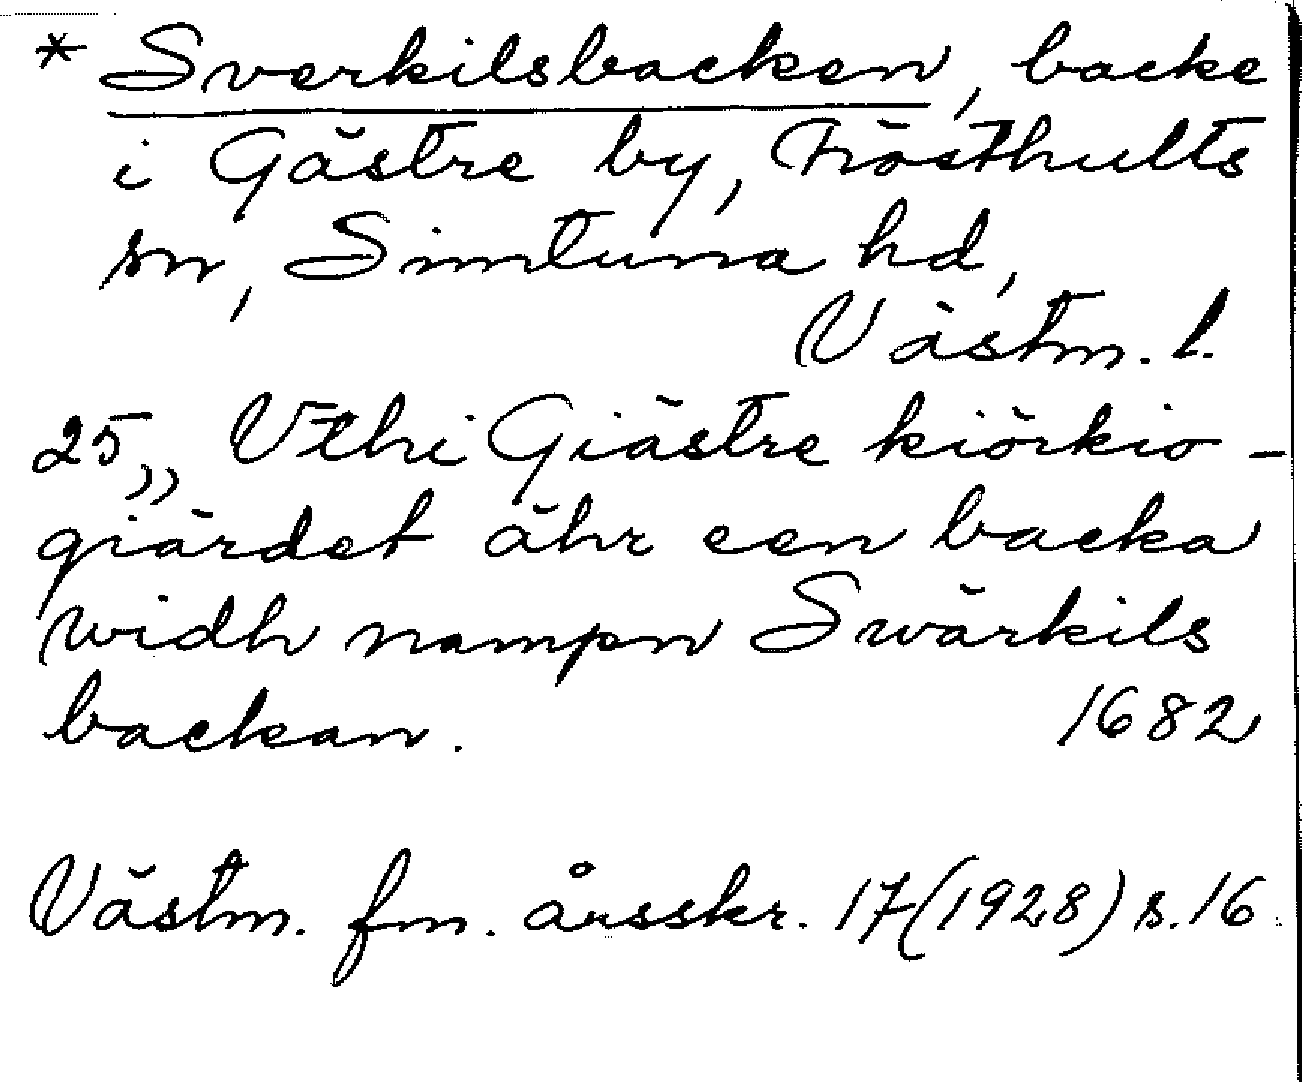 * Sverkilsbacken, backe
i Gästre by, Frösthults
sn, Simtuna hd,
Västm. l.
25,, Vthi Giästre kiörkio-
giärdet ähr een backa
widh nampn Swärkils
backan. 1682
Västm. fm. årsskr. 17 (1928) s. 16